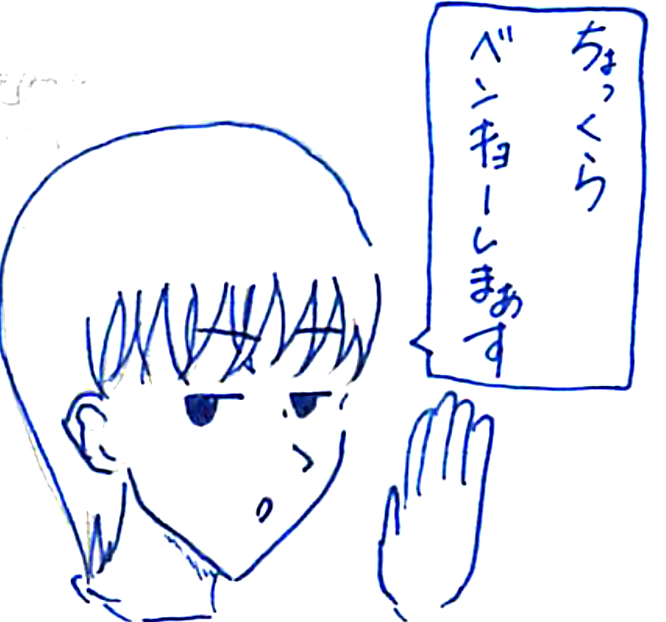 ちょっくら
ベンキョーしまぁす